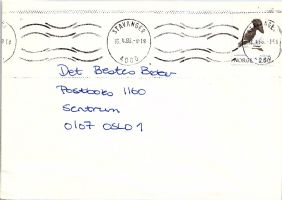 STAVANGER
4000
NORGE 2.50
Det Bestes Bøker
Postboks 1160
Sentrum
0107 OSLO 1